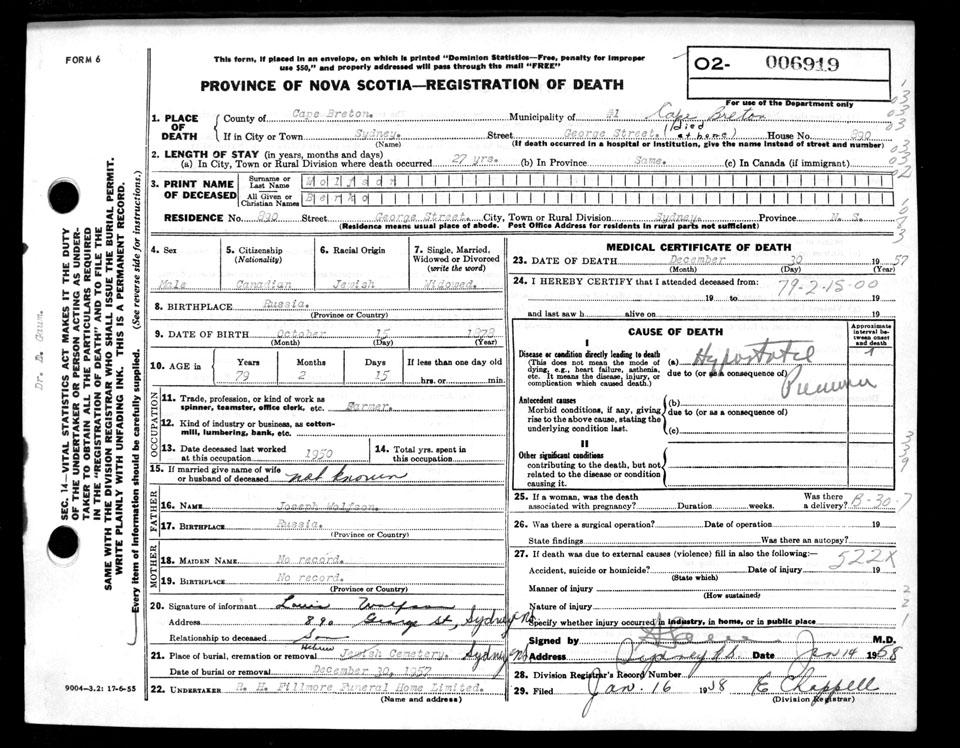 FORM 6
This form, if placed in an envelope, on which is printed "Dominion Statistics—Free, penalty for improper
use $50," and properly addressed will pass through the mail "FREE"
PROVINCE OF NOVA SCOTIA—REGISTRATION OF DEATH
O2- 006919
For use of the Department only
1. PLACE OF DEATH
County of Cape Breton. Municipality of #1 Cape Breton
If in City or Town Sydney. Street George Street. (Died at home) House No. 890
(Name) (If death occurred in a hospital or institution, give the name instead of street and number)
2. LENGTH OF STAY (in years, months and days)
(a) In City, Town or Rural Division where death occurred 27 yrs. (b) In Province Same. (c) In Canada (if immigrant)
3. PRINT NAME OF DECEASED
Surname or Last Name
All Given or Christian Names
RESIDENCE No. 890 Street George Street. City, Town or Rural Division Sydney. Province N. S.
(Residence means usual place of abode. Post Office Address for residents in rural parts not sufficient)
4. Sex
Male
5. Citizenship (Nationality)
Canadian
6. Racial Origin
Jewish
7. Single, Married, Widowed or Divorced (write the word)
Widowed.
8. BIRTHPLACE Russia.
(Province or Country)
9. DATE OF BIRTH October 15 1878
(Month) (Day) (Year)
10. AGE in
Years Months Days If less than one day old
79 2 15 hrs. or min.
OCCUPATION
11. Trade, profession, or kind of work as
spinner, teamster, office clerk, etc. Farmer.
12. Kind of industry or business, as cotton-
mill, lumbering, bank, etc.
13. Date deceased last worked
at this occupation 1950
14. Total yrs. spent in
this occupation
15. If married give name of wife
or husband of deceased not known
FATHER
16. NAME Joseph Wolfson.
17. BIRTHPLACE Russia.
(Province or Country)
MOTHER
18. MAIDEN NAME No record.
19. BIRTHPLACE No record.
(Province or Country)
20. Signature of informant Louis Wolfson
Address 890 George St, Sydney NS
Relationship to deceased Son
21. Place of burial, cremation or removal Hebrew Jewish Cemetery. Sydney NS
Date of burial or removal December 30, 1957
22. UNDERTAKER R. H. Fillmore Funeral Home Limited.
(Name and address)
MEDICAL CERTIFICATE OF DEATH
23. DATE OF DEATH December 30 1957
(Month) (Day) (Year)
24. I HEREBY CERTIFY that I attended deceased from: 79-2-15-00
19 to 19
and last saw h alive on 19
CAUSE OF DEATH
Approximate interval between onset and death
I
Disease or condition directly leading to death
(This does not mean the mode of
dying, e.g., heart failure, asthenia,
etc. It means the disease, injury, or
complication which caused death.)
(a) Hypostatic
due to (or as a consequence of)
Antecedent causes
Morbid conditions, if any, giving
rise to the above cause, stating the
underlying condition last.
(b)
due to (or as a consequence of)
(c)
II
Other significant conditions
contributing to the death, but not
related to the disease or condition
causing it.
25. If a woman, was the death
associated with pregnancy? Duration weeks. Was there
a delivery? B-30-7
26. Was there a surgical operation? Date of operation 19
State findings Was there an autopsy?
27. If death was due to external causes (violence) fill in also the following:—
522X
Accident, suicide or homicide? Date of injury 19
(State which)
Manner of injury
(How sustained)
Nature of injury
Specify whether injury occurred in industry, in home, or in public place
Signed by M.D.
Address Sydney N.S. Date Jan 14 1958
28. Division Registrar's Record Number
29. Filed Jan. 16 1958 E Chappell
(Division Registrar)
Dr. D. Gaum.
SEC. 14—VITAL STATISTICS ACT MAKES IT THE DUTY
OF THE UNDERTAKER OR PERSON ACTING AS UNDER-
TAKER TO OBTAIN ALL THE PARTICULARS REQUIRED
IN THE "REGISTRATION OF DEATH" AND TO FILE THE
SAME WITH THE DIVISION REGISTRAR WHO SHALL ISSUE THE BURIAL PERMIT.
WRITE PLAINLY WITH UNFADING INK. THIS IS A PERMANENT RECORD.
Every item of Information should be carefully supplied. (See reverse side for instructions.)
9004-3.2: 17-6-55